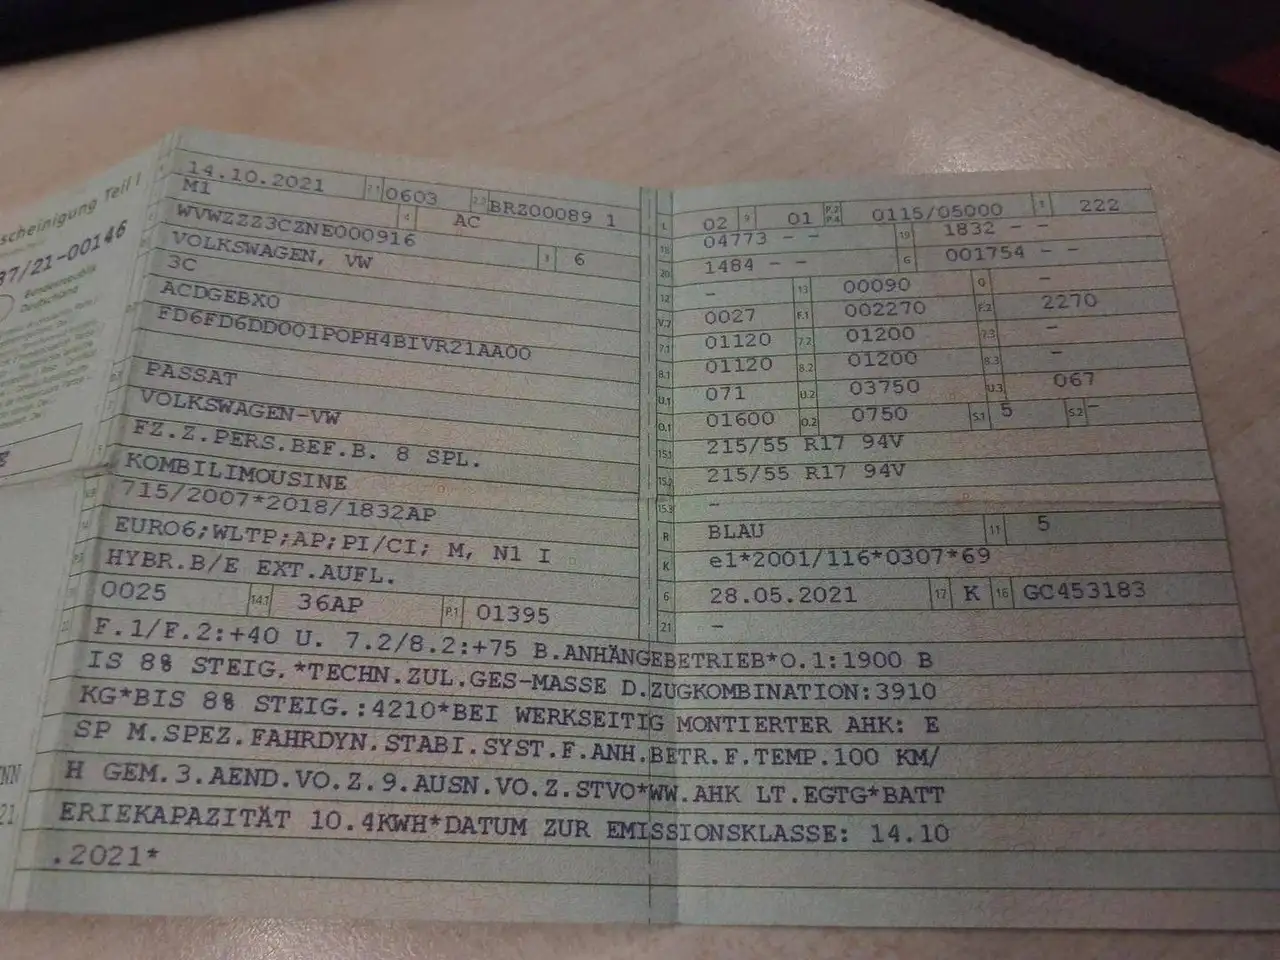 scheinigung Teil I
37/21-00146
Bundesrepublik
Deutschland
14.10.2021 2.1 0603 2.2 BRZ00089 1
M1 4 AC
WVWZZZ3CZNE000916
VOLKSWAGEN, VW 3 6
3C
ACDGEBX0
FD6FD6DD001POPH4BIVR21AA00
PASSAT
VOLKSWAGEN-VW
FZ.Z.PERS.BEF.B. 8 SPL.
KOMBILIMOUSINE
715/2007*2018/1832AP
EURO6;WLTP;AP;PI/CI; M, N1 I
HYBR.B/E EXT.AUFL.
0025 14.1 36AP P.1 01395
L 02 9 01 P.2 P.4 0115/05000 T 222
18 04773 - - 19 1832 - -
20 1484 - - G 001754 - -
12 - 13 00090 Q -
V.7 0027 F.1 002270 F.2 2270
7.1 01120 7.2 01200 7.3 -
8.1 01120 8.2 01200 8.3 -
U.1 071 U.2 03750 U.3 067
O.1 01600 O.2 0750 S.1 5 S.2 -
15.1 215/55 R17 94V
15.2 215/55 R17 94V
15.3 -
R BLAU 11 5
K e1*2001/116*0307*69
6 28.05.2021 17 K 16 GC453183
21 -
F.1/F.2:+40 U. 7.2/8.2:+75 B.ANHÄNGEBETRIEB*O.1:1900 B
IS 8% STEIG.*TECHN.ZUL.GES-MASSE D.ZUGKOMBINATION:3910
KG*BIS 8% STEIG.:4210*BEI WERKSEITIG MONTIERTER AHK: E
SP M.SPEZ.FAHRDYN.STABI.SYST.F.ANH.BETR.F.TEMP.100 KM/
H GEM.3.AEND.VO.Z.9.AUSN.VO.Z.STVO*WW.AHK LT.EGTG*BATT
ERIEKAPAZITÄT 10.4KWH*DATUM ZUR EMISSIONSKLASSE: 14.10
.2021*